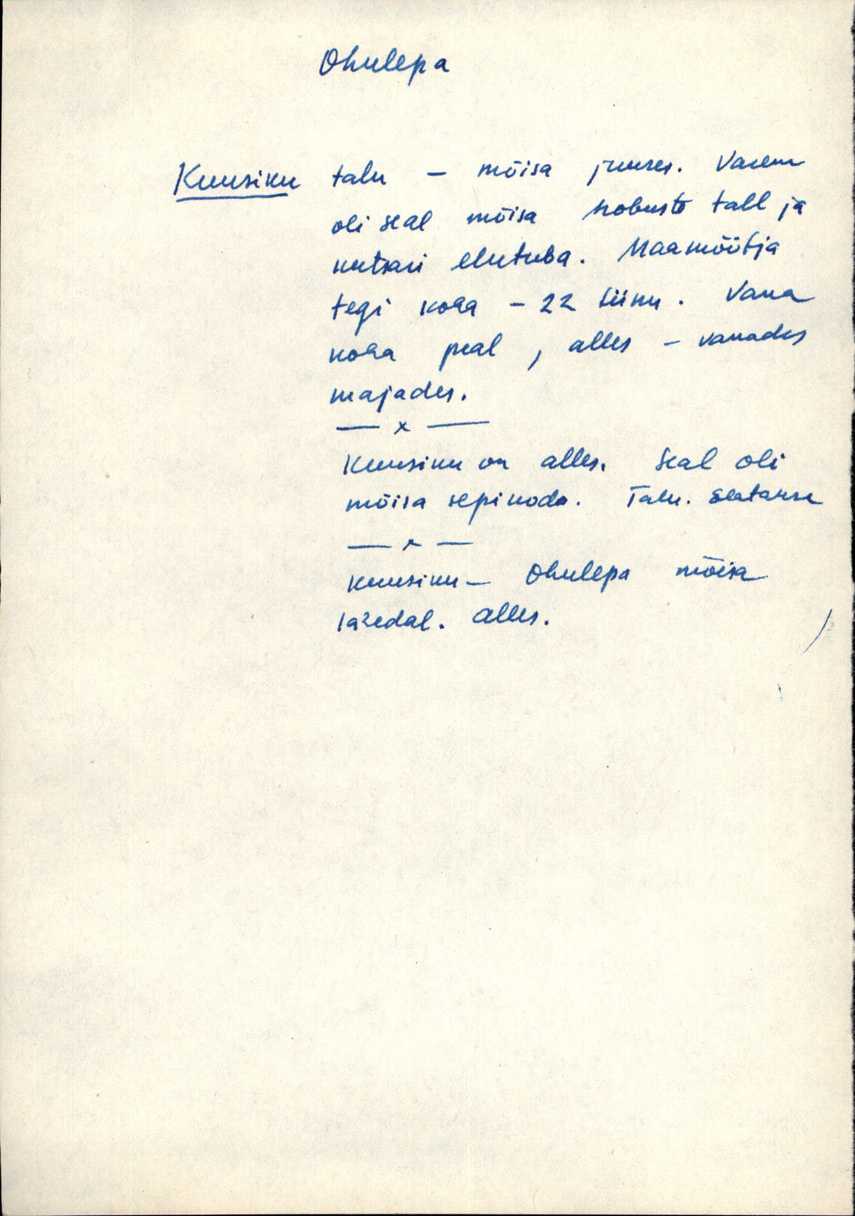 Ohulepa
Kuusiku talu – mõisa juures. Varem
oli seal mõisa hobuste tall ja
kutsari elutuba. Maamõõtja
tegi koha – 22 tiinu. Vana
koha peal, alles – vanades
majades.
— x —
Kuusiku on alles. Seal oli
mõisa sepikoda. Talu.
— x —
Kuusiku – Ohulepa mõisa
lähedal. Alles.